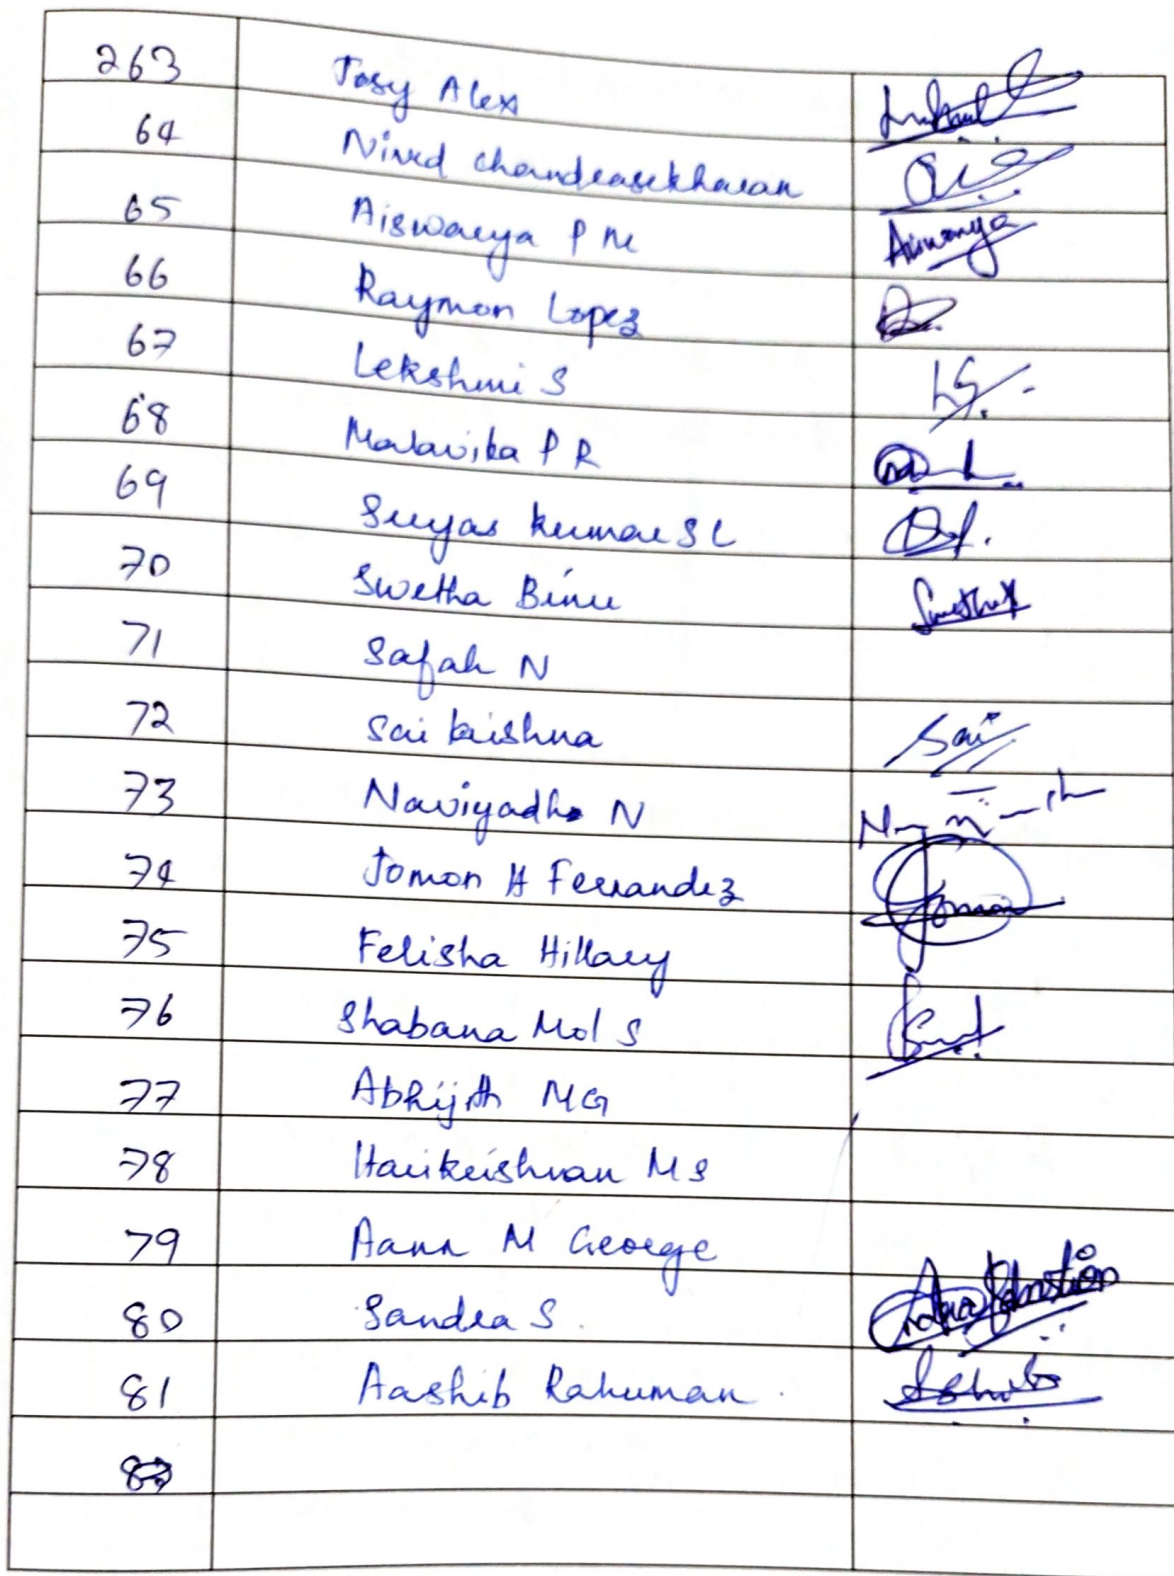 263 Josy Alex
64 Nived chandrasekharan
65 Aiswarya P M Aiswarya
66 Raymon Lopez
67 Lekshmi S LS
68 Malavika P R
69 Suryas kumar S L
70 Swetha Binu Swetha
71 Safah N
72 Sai krishna Sai
73 Naviyadh N
74 Jomon A Ferrandez Jomon
75 Felisha Hillary
76 Shabana Mol S
77 Abhijith MG
78 Harikrishnan M S
79 Aann M George
80 Sandra S.
81 Aashib Rahuman